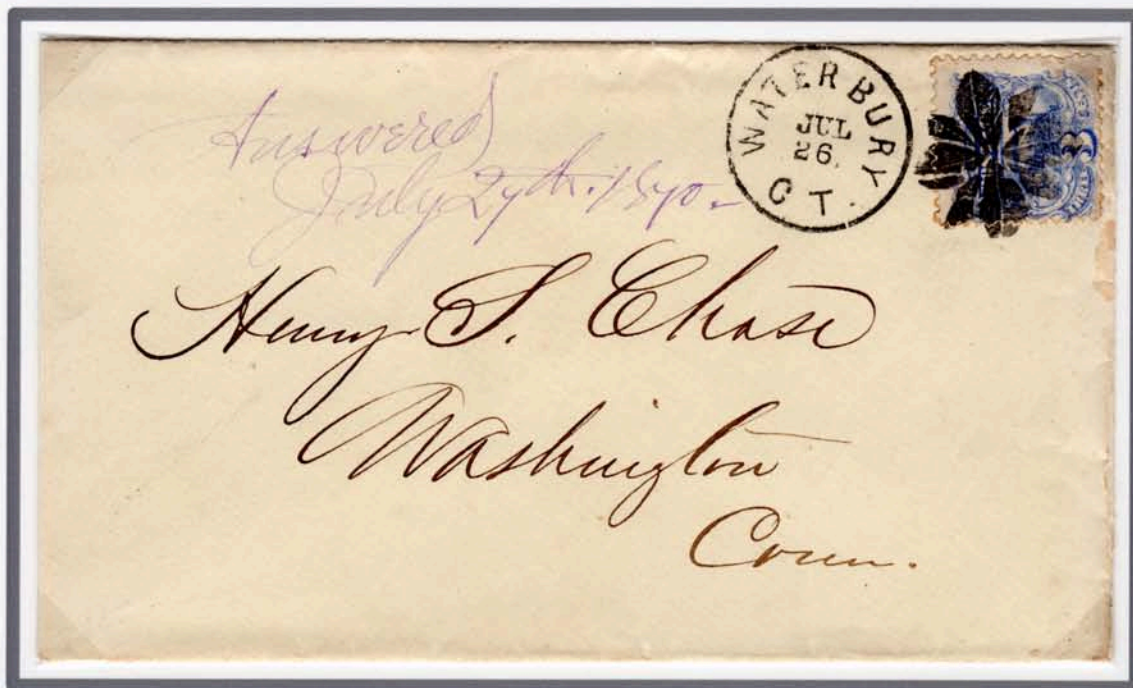 Answered
July 27th. 1870.
WATERBURY
JUL
26.
CT.
3
Henry S. Chase
Washington
Conn.